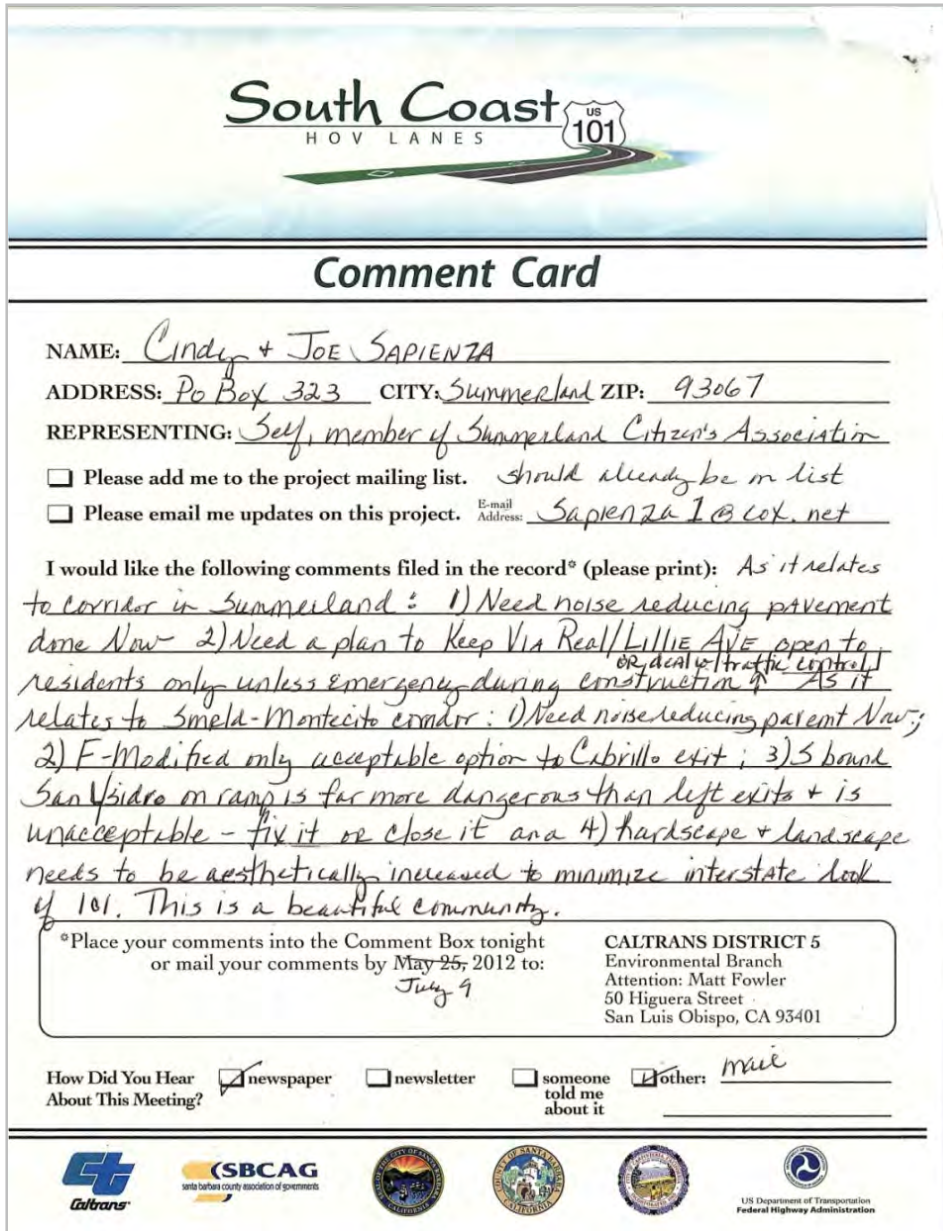 South Coast
HOV LANES
US
101
Comment Card
NAME: Cindy + JOE SAPIENZA
ADDRESS: Po Box 323 CITY: Summerland ZIP: 93067
REPRESENTING: Self, member of Summerland Citizen's Association
Please add me to the project mailing list. should already be on list
Please email me updates on this project. E-mail Address: Sapienza1@cox.net
I would like the following comments filed in the record* (please print): As it relates
to corridor in Summerland: 1) Need noise reducing pavement
done Now 2) Need a plan to Keep VIA Real/LILLIE AVE open to
OR deal w/ traffic control
residents only unless Emergency during construction ↑ As it
relates to Smrld-Montecito corridor: 1) Need noise reducing pavemt Now;
2) F-Modified only acceptable option to Cabrillo exit; 3) S bound
San Ysidro on ramp is far more dangerous than left exits + is
unacceptable - fix it or close it and 4) hardscape + landscape
needs to be aesthetically increased to minimize interstate look
of 101. This is a beautiful community.
*Place your comments into the Comment Box tonight
or mail your comments by May 25, 2012 to:
July 9
CALTRANS DISTRICT 5
Environmental Branch
Attention: Matt Fowler
50 Higuera Street
San Luis Obispo, CA 93401
How Did You Hear
About This Meeting?
newspaper
newsletter
someone
told me
about it
other: mail
Caltrans
SBCAG
santa barbara county association of governments
US Department of Transportation
Federal Highway Administration